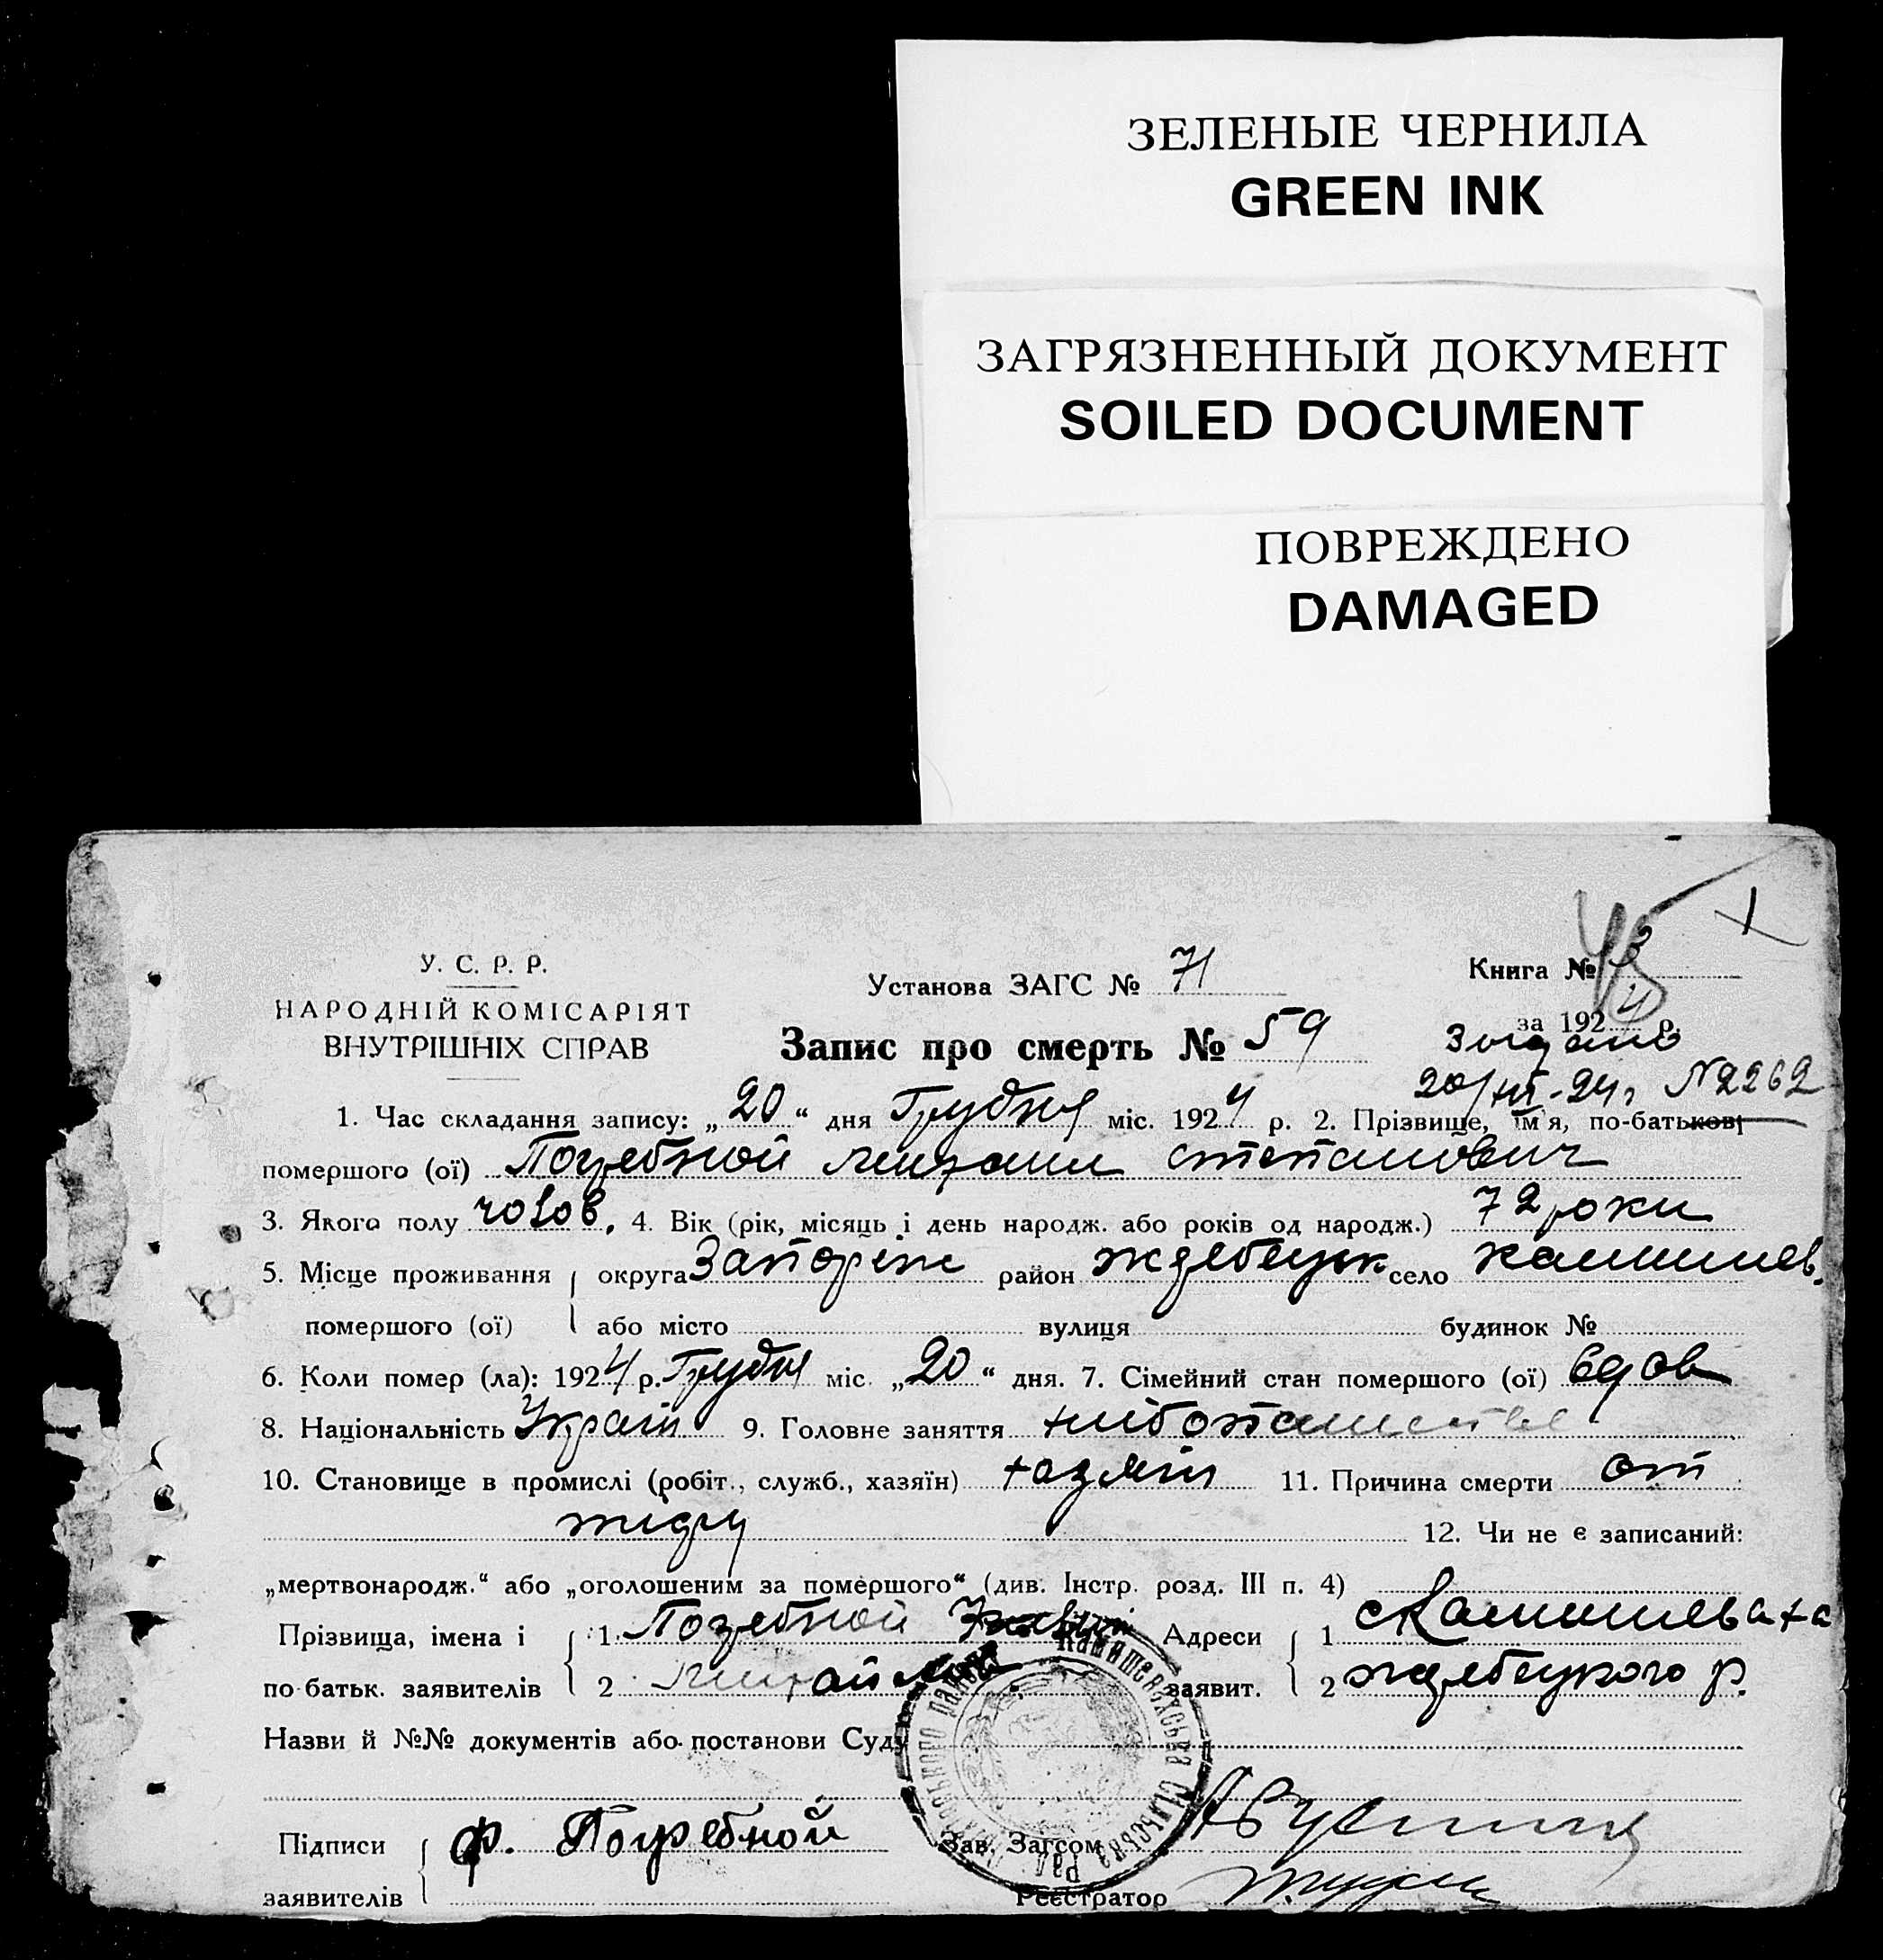 ЗЕЛЕНЫЕ ЧЕРНИЛА
GREEN INK
ЗАГРЯЗНЕННЫЙ ДОКУМЕНТ
SOILED DOCUMENT
ПОВРЕЖДЕНО
DAMAGED
У. С. Р. Р.
НАРОДНІЙ КОМІСАРІЯТ
ВНУТРІШНІХ СПРАВ
Установа ЗАГС № 71
Книга №
за 1924 р.
Запис про смерть № 59
20/XII-24 г. №2262
1. Час складання запису: „20“ дня Грудня міс. 1924 р. 2. Прізвище, ім'я, по-батькові
помершого (ої) Погребной Михаил Степанович
3. Якого полу чолов. 4. Вік (рік, місяць і день народж. або років од народж.) 72 роки
5. Місце проживання округа Запоріж район Жеребецьк село Камишев.
помершого (ої) або місто вулиця будинок №
6. Коли помер (ла): 1924 р. Грудня міс. „20“ дня. 7. Сімейний стан помершого (ої) вдов
8. Національність Україн 9. Головне заняття
10. Становище в промислі (робіт., служб., хазяїн) 11. Причина смерти от
12. Чи не є записаний:
„мертвонародж.“ або „оголошеним за помершого“ (див. Інстр. розд. III п. 4)
Прізвища, імена і 1. Погребной Адреси 1 с Камишеваха
по-батьк. заявителів 2 заявит. 2 Жеребецкого р.
Назви й №№ документів або постанови Суду
Підписи Ф. Погребной Зав. Загсом
заявителів Реєстратор
Камишевахська Сільська Рад